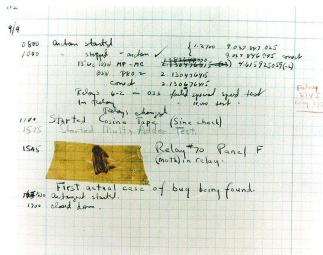 9/9
0800 antan started { 1.2700 9.037 847 025
1000 " stopped - antan ✓ 9.037 846 995 correct
13" uc (032) MP - MC 2.130476415 4.615925059(-2)
033 PRO 2 2.130476415
correct 2.130676415
Relays 6-2 in 033 failed special speed test
in relay " 11.000 test.
Relays changed
1100 Started Cosine Tape (Sine check)
1525 Started Multi Adder Test.
1545 Relay #70 Panel F
(moth) in relay.
First actual case of bug being found.
1630 antangent started.
1700 closed down.